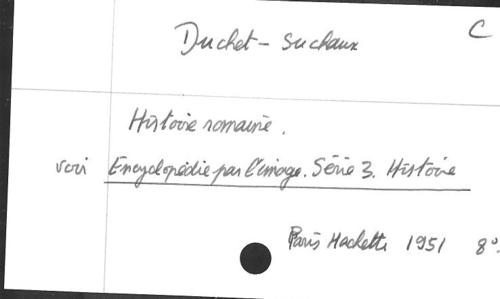 C
Duchet - Suchaux
Histoire romaine.
voir Encyclopédie par l'image. Série 3. Histoire
Paris Hachette 1951 8º.